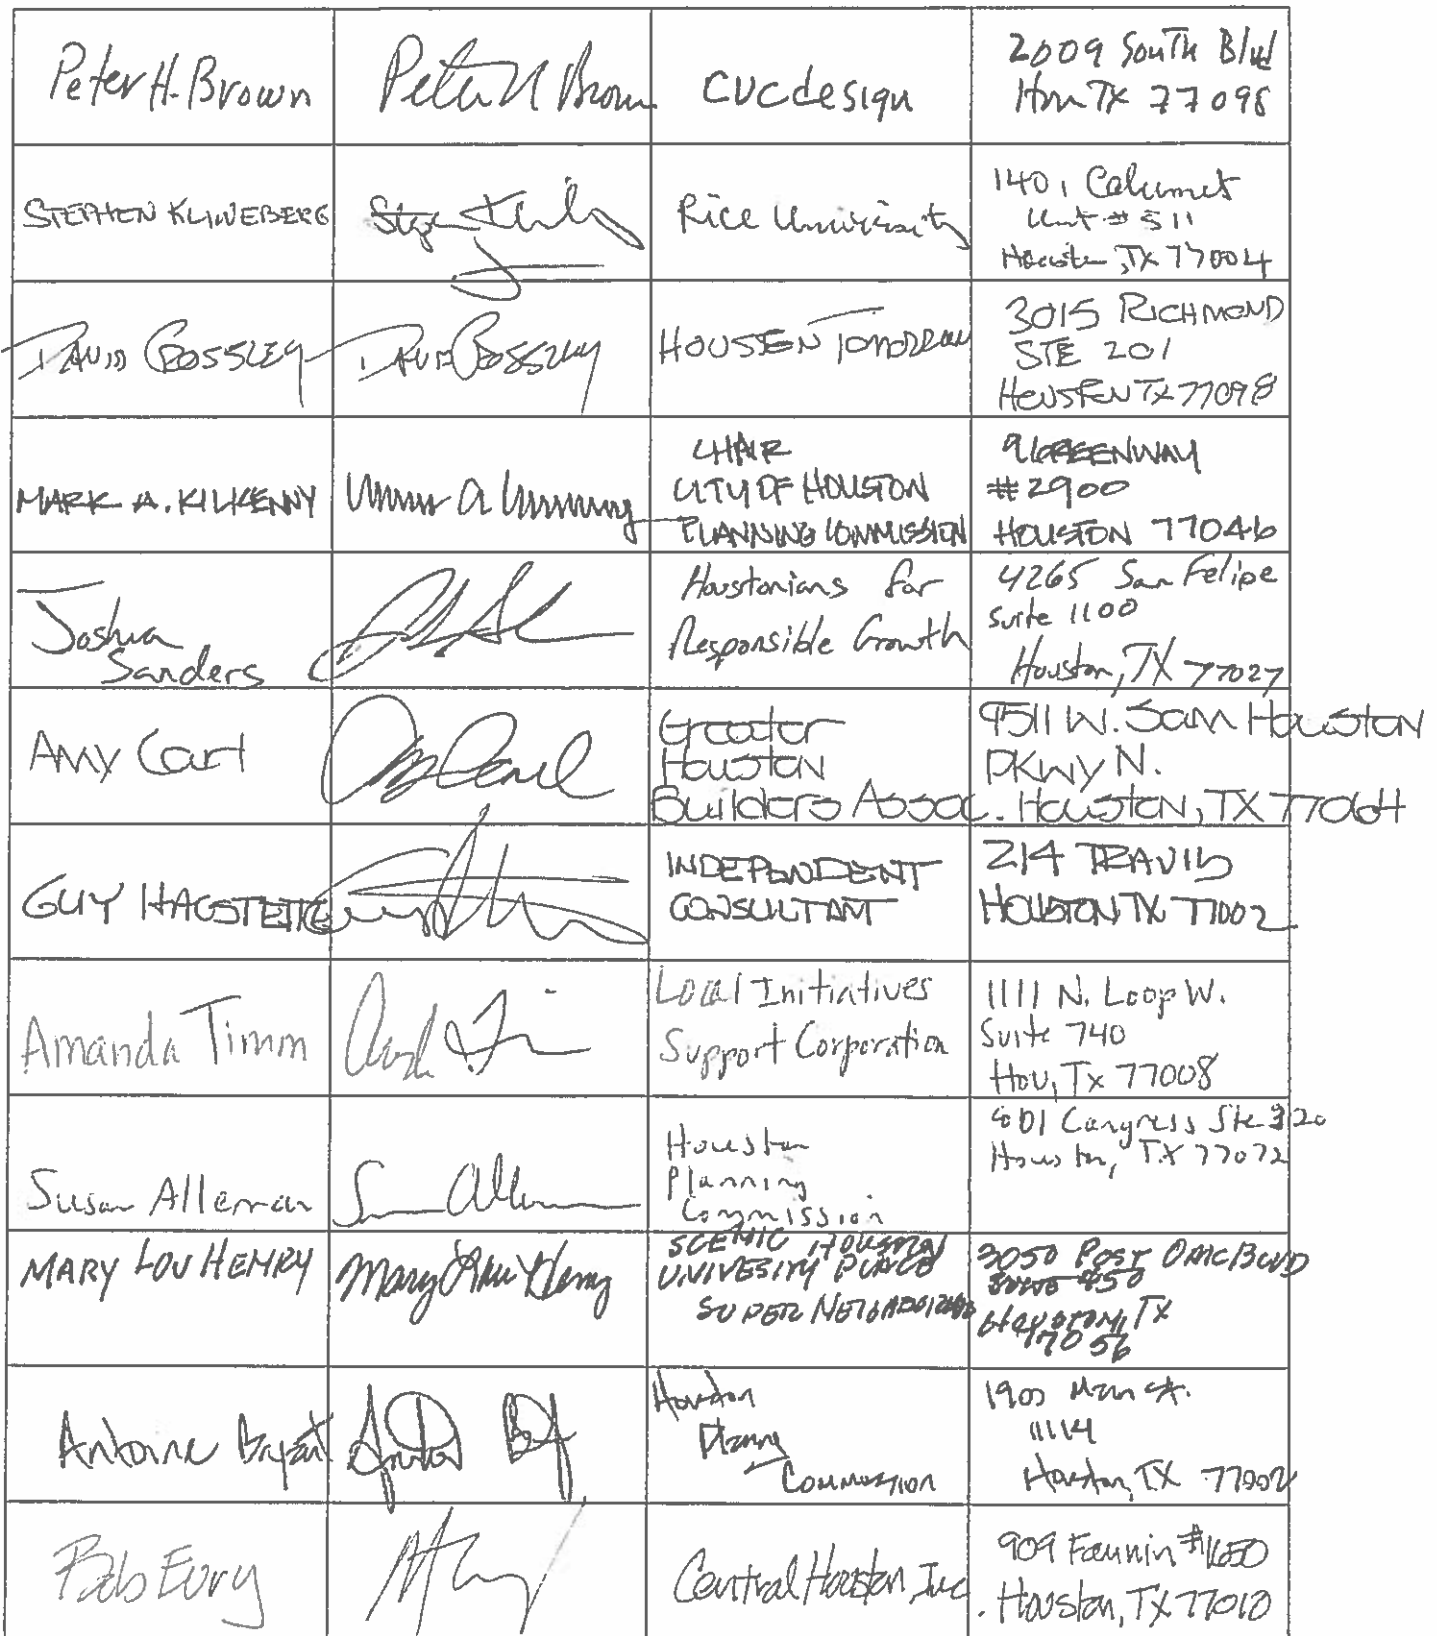 Peter H. Brown
Peter H Brown
cvcdesign
2009 South Blvd
Hou TX 77098
STEPHEN KLINEBERG
Rice University
1401 Calumet
Unit # 511
Houston, TX 77004
DAVID CROSSLEY
DAVID CROSSLEY
HOUSTON TOMORROW
3015 RICHMOND
STE 201
HOUSTON TX 77098
MARK A. KILKENNY
CHAIR
CITY OF HOUSTON
PLANNING COMMISSION
9 GREENWAY
#2900
HOUSTON 77046
Joshua
Sanders
Houstonians for
Responsible Growth
4265 San Felipe
Suite 1100
Houston, TX 77027
AMY Card
Greater
Houston
Builders Assoc.
9511 W. Sam Houston
PKWY N.
Houston, TX 77064
GUY HAGSTETTE
INDEPENDENT
CONSULTANT
214 TRAVIS
HOUSTON TX 77002
Amanda Timm
Local Initiatives
Support Corporation
1111 N. Loop W.
Suite 740
Hou, Tx 77008
Susan Alleman
Houston
Planning
Commission
Congress Ste
Houston, TX 77072
MARY LOU HENRY
Mary Lou Henry
SCENIC HOUSTON
UNIVESITY PLACE
SUPER NEIGHBORHOOD
3050 POST OAK BLVD
850
HOUSTON, TX
77056
Antoine Bryant
Houston
Planning
COMMISSION
1900 Main St.
1114
Houston, TX 77002
Bob Eury
Central Houston, Inc.
909 Fannin #1650
Houston, TX 77010